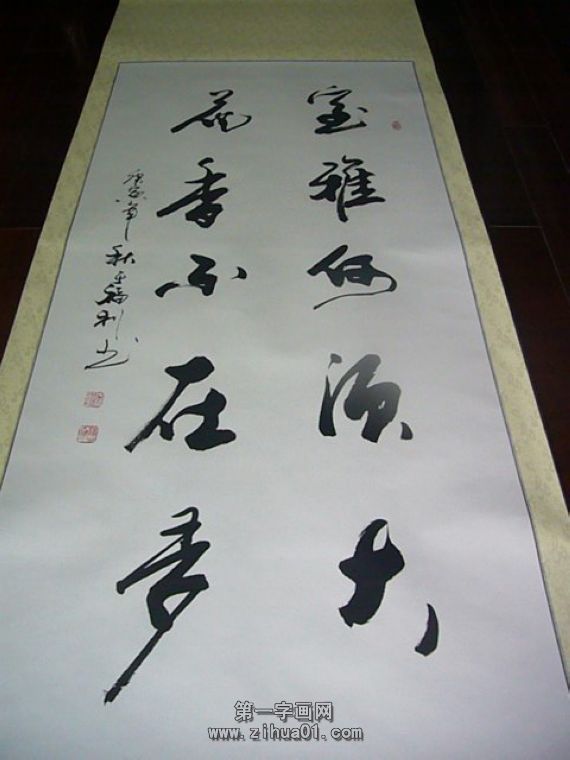 室雅何须大
花香不在多
秋王福利书
第一字画网
www.zihua01.com